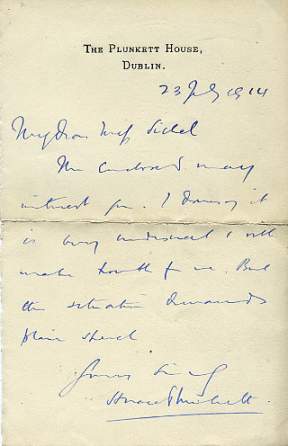 THE PLUNKETT HOUSE,
DUBLIN.
23 July 1914
My dear Miss
The enclosed may
interest you. I daresay it
is very indiscreet & will
make trouble for me. But
the situation demands
plain speech
Yours sincely
Horace Plunkett.